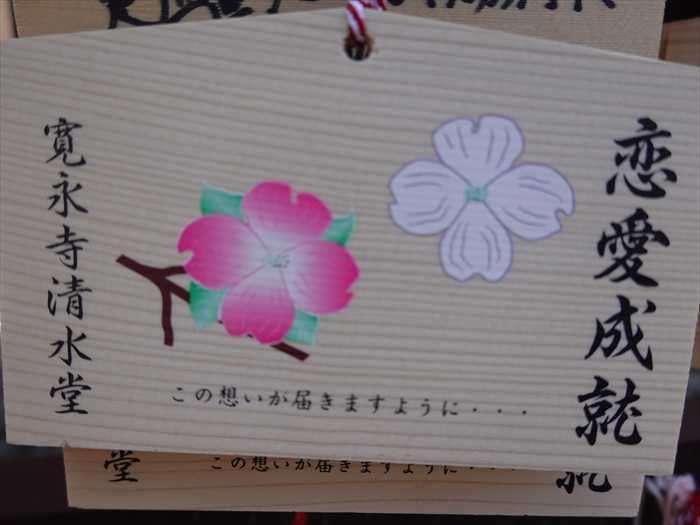 恋愛成就
この想いが届きますように・・・
寛永寺清水堂
就
この想いが届きますように・・・
堂